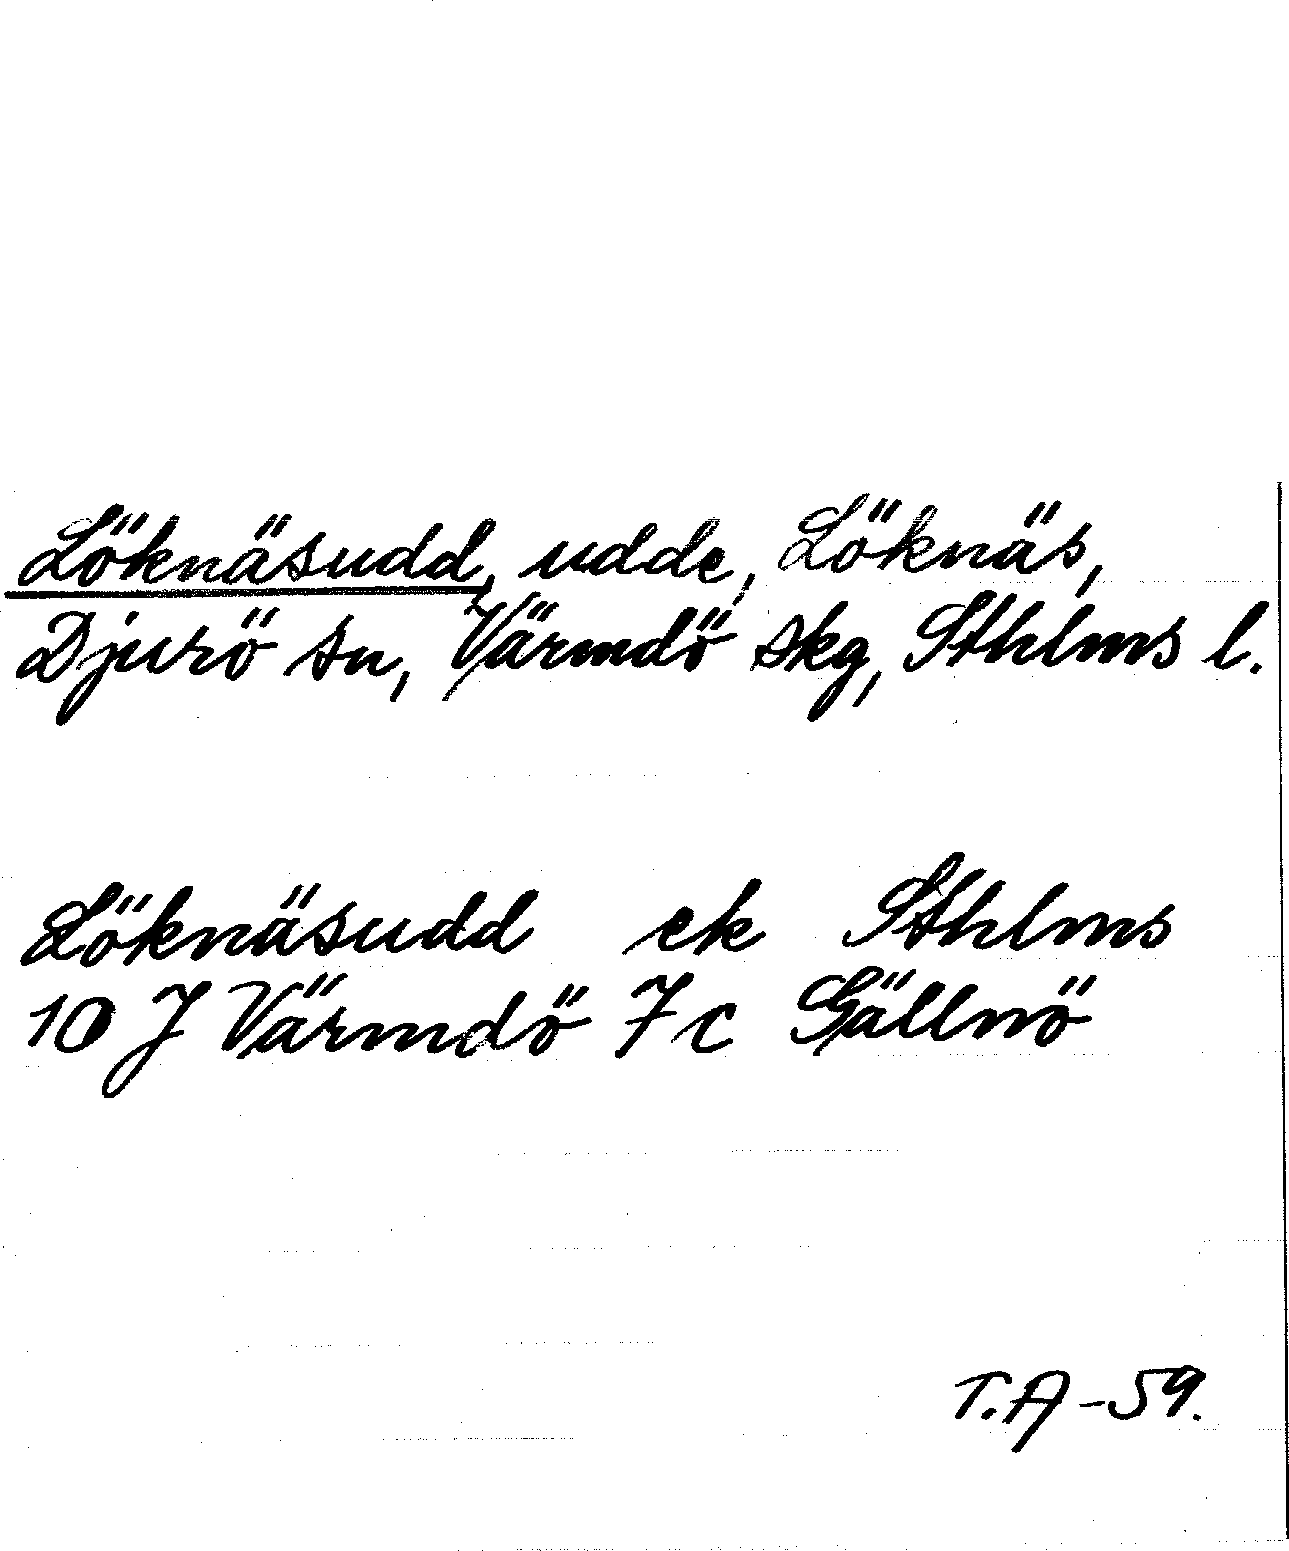 Löknäsudd, udde, Löknäs,
Djurö sn, Värmdö skg, Sthlms l.
Löknäsudd ek Sthlms
10 J Värmdö 7 c Gällnö
T.A -59.